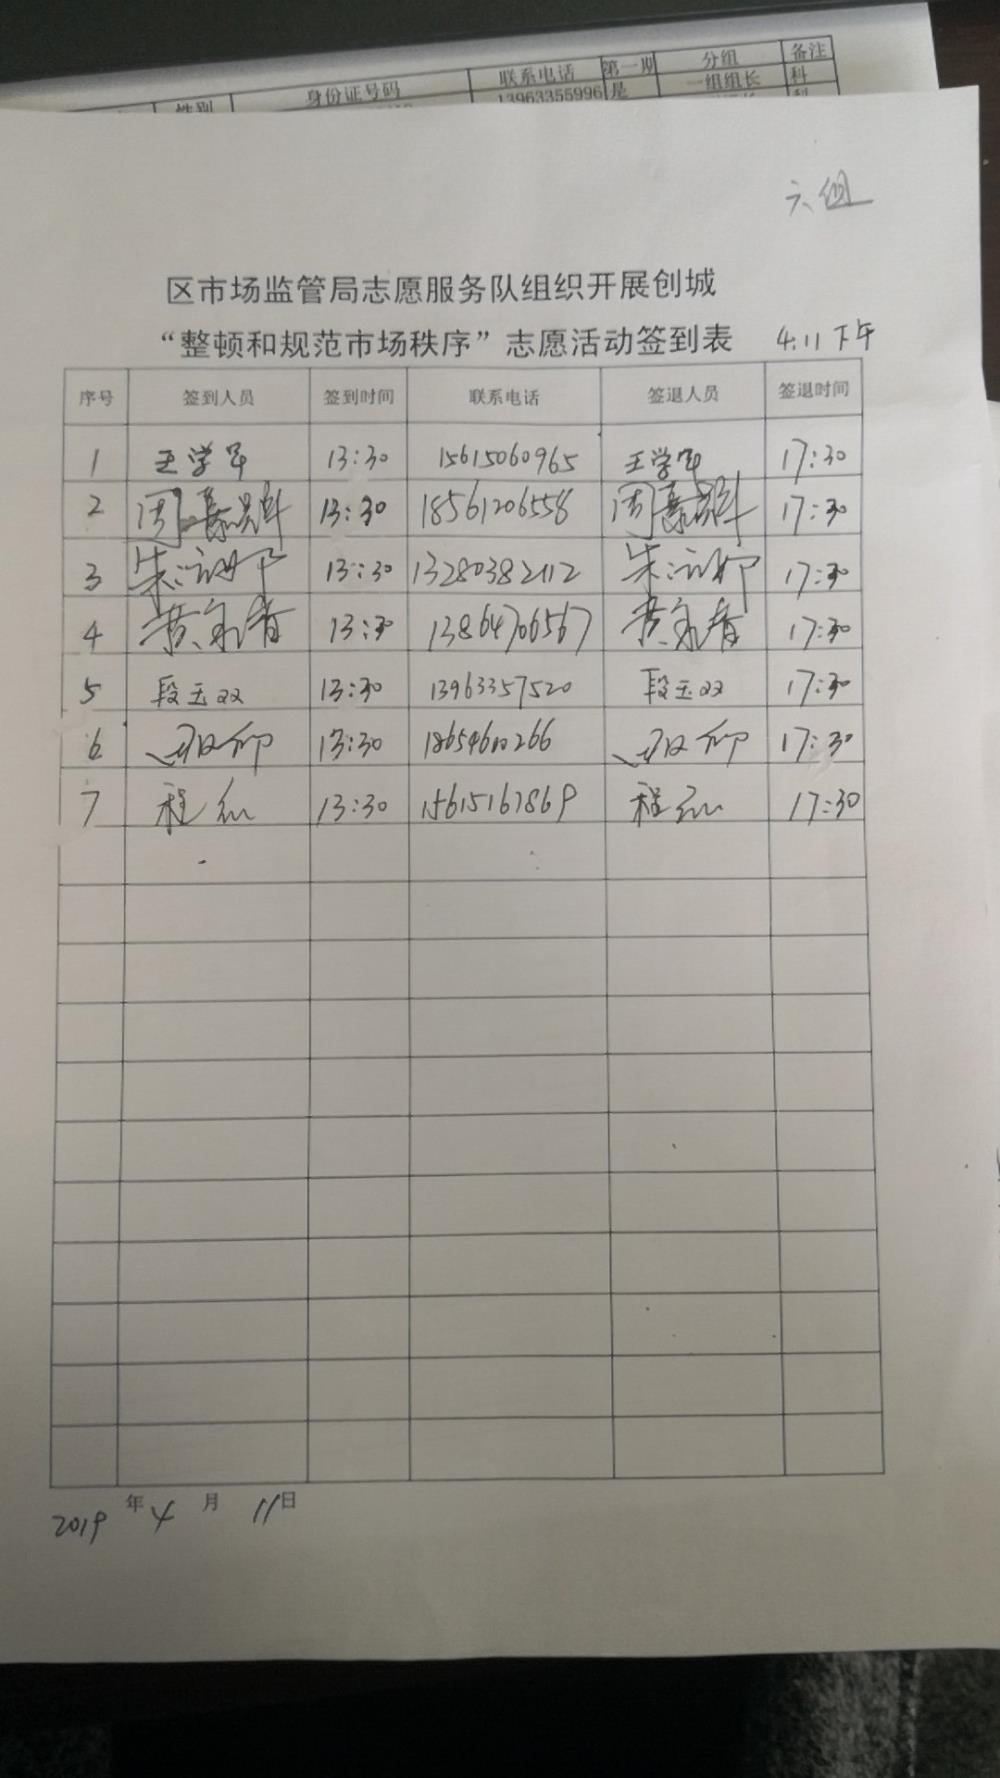 性别 身份证号码 联系电话 第一期 分组 备注
13963355996 是 一组组长 科
六组
区市场监管局志愿服务队组织开展创城
“整顿和规范市场秩序”志愿活动签到表 4.11下午
序号 签到人员 签到时间 联系电话 签退人员 签退时间
1 王学军 13:30 15615060965 王学军 17:30
2 周 13:30 18561206558 周 17:30
3 朱 13:30 13280382112 朱 17:30
4 黄永春 13:30 13864706567 黄永春 17:30
5 段玉双 13:30 13963357520 段玉双 17:30
6 13:30 17:30
7 程 13:30 程 17:30
2019年4月11日